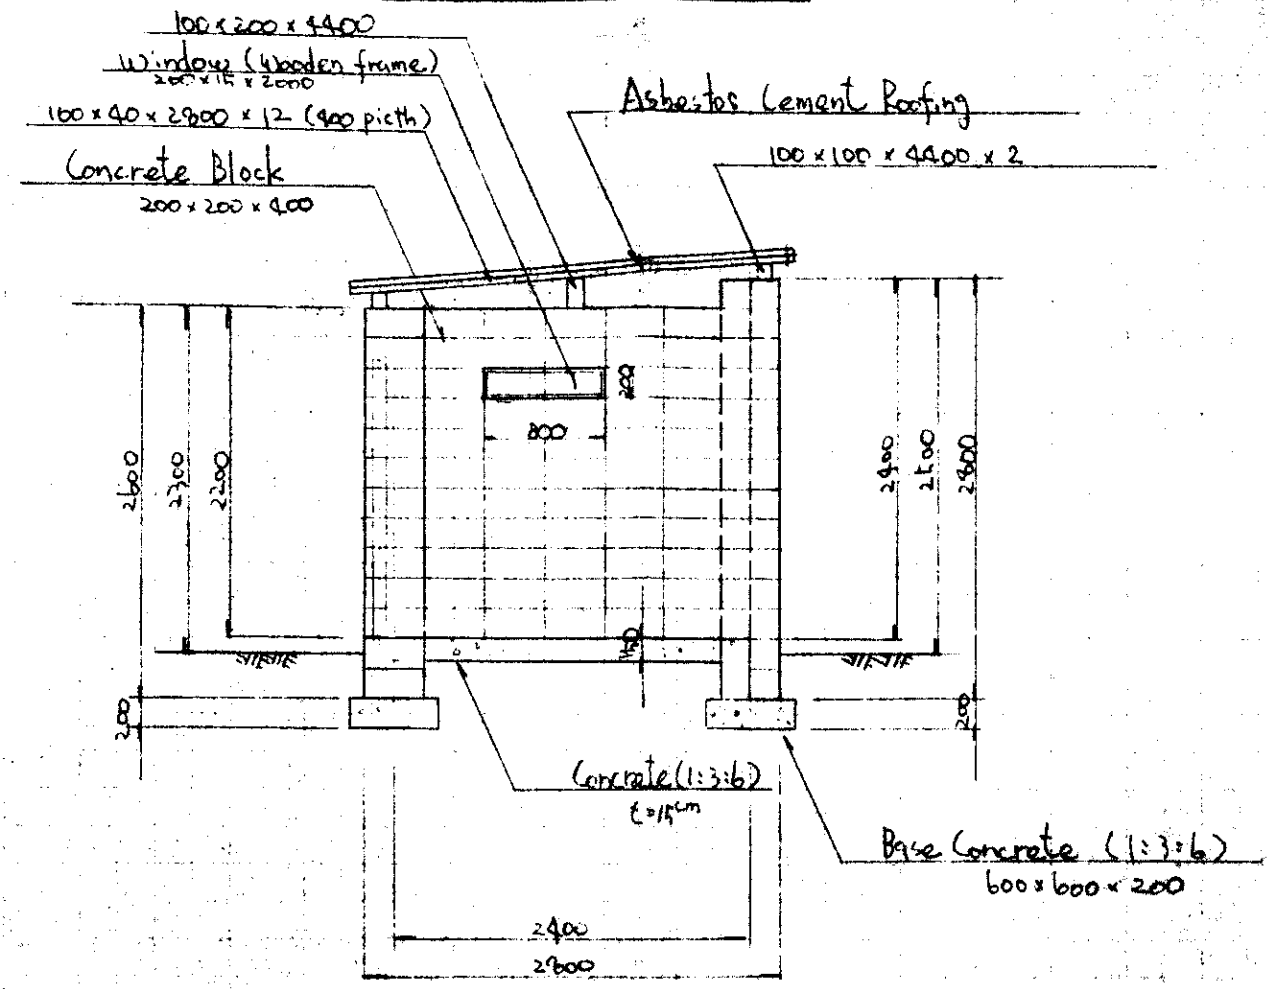 100 × 200 × 4400
Window (Wooden frame)
200 × 15 × 2000
100 × 40 × 2800 × 12 (400 picth)
Concrete Block
200 × 200 × 400
Asbestos Cement Roofing
100 × 100 × 4400 × 2
200
800
2600
2300
2200
2400
2500
2800
150
200
200
Concrete (1:3:6)
t=15cm
Base Concrete (1:3:6)
600 × 600 × 200
2400
2800